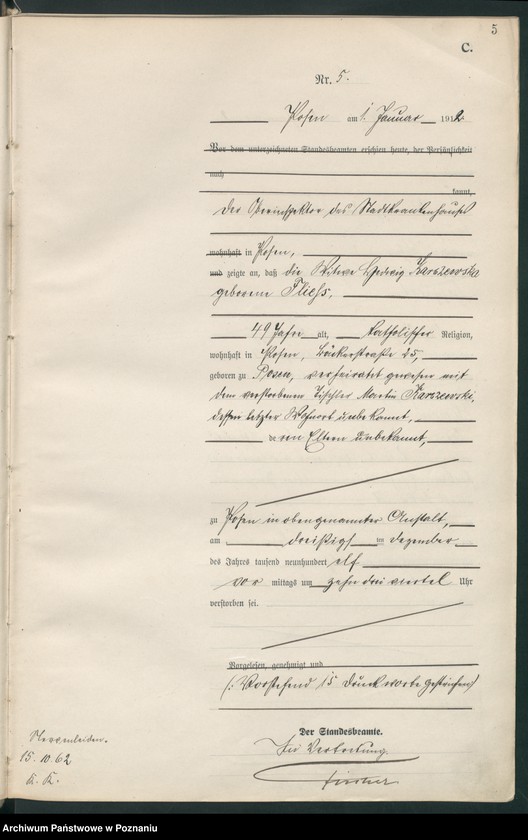 5
C.
Nr. 5.
Posen am 1. Januar 1912
Vor dem unterzeichneten Standesbeamten erschien heute, der Persönlichkeit
nach
kannt,
Der Oberinspektor des Stadtkrankenhauses
wohnhaft in Posen,
und zeigte an, daß die Witwe Hedwig Karszewska
geborene Fliehs,
49 Jahre alt, katholischer Religion,
wohnhaft in Posen, Bäckerstraße 25,
geboren zu Posen, verheiratet gewesen mit
dem verstorbenen Tischler Martin Karszewski,
dessen letzter Wohnort unbekannt,
deren Eltern unbekannt,
zu Posen in obengenannter Anstalt,
am dreißigsten Dezember
des Jahres tausend neunhundert elf
vor mittags um zehn drei viertel Uhr
verstorben sei.
Vorgelesen, genehmigt und
(: Vorstehend 15 Druckworte gestrichen)
Der Standesbeamte.
In Vertretung.
Fischer
Nervenleiden.
15. 10. 62
K. K.
Archiwum Państwowe w Poznaniu